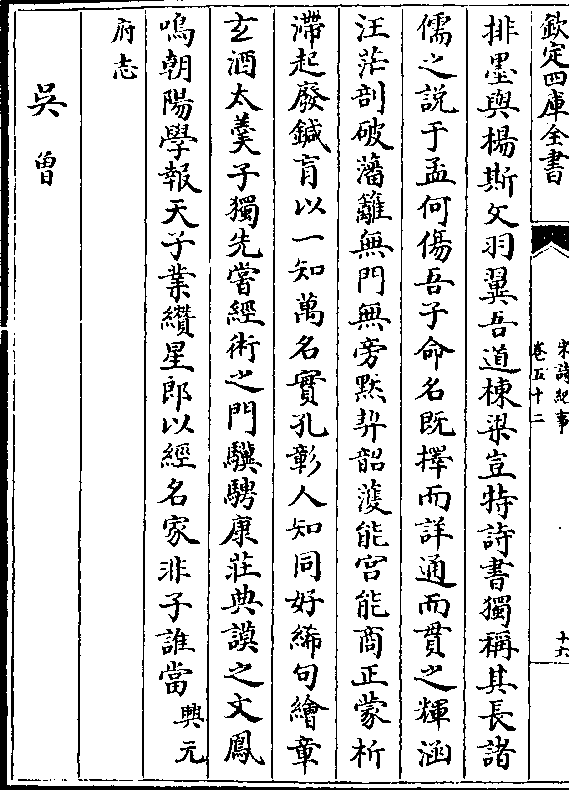 欽定四庫全書
宋詩紀事
卷五十二
十六
排墨與楊斯文羽翼吾道棟梁豈特詩書獨稱其長諸
儒之說于孟何傷吾子命名既擇而詳通而貫之輝涵
汪茫剖破藩籬無門無旁黙契韶頀能宫能商正蒙析
滯起廢鍼肓以一知萬名實孔彰人知同好絺句繪章
玄酒太羹子獨先嘗經術之門驥騁康莊典謨之文鳳
鳴朝陽學報天子業纉星郎以經名家非子誰當 興元
府志
吳曾